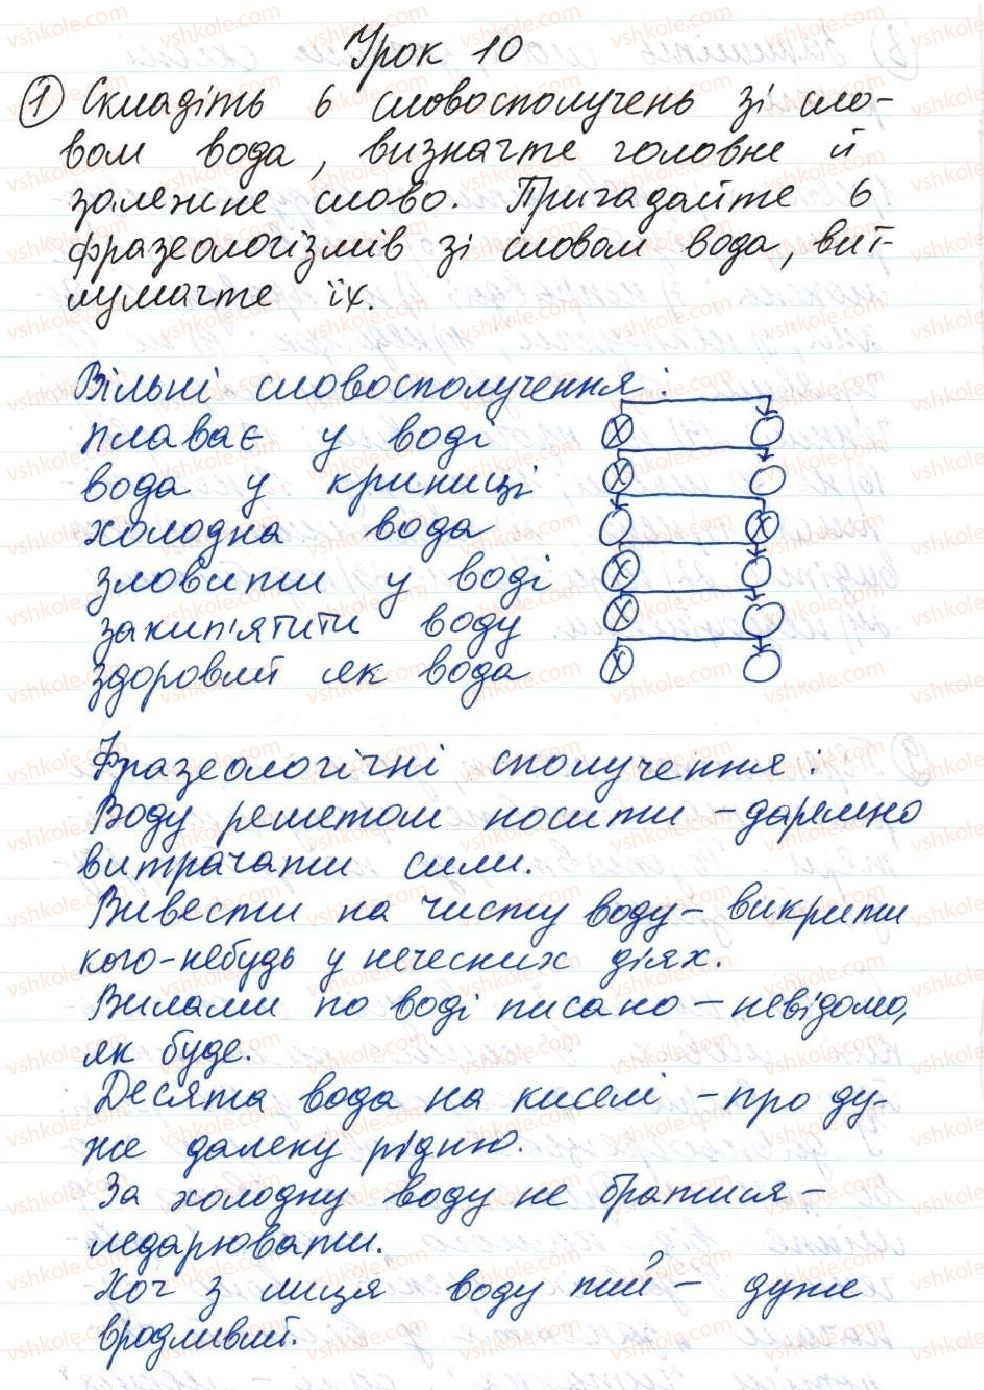 Урок 10
① Складіть 6 словосполучень зі сло-
вом вода, визначте головне й
залежне слово. Пригадайте 6
фразеологізмів зі словом вода, вит-
лумачте їх.
Вільні словосполучення:
плаває у воді
вода у криниці
холодна вода
зловити у воді
закип'ятити воду
здоровий як вода
Фразеологічні сполучення:
Воду решетом носити – даремно
витрачати сили.
Вивести на чисту воду – викрити
кого-небудь у нечесних діях.
Вилами по воді писано – невідомо,
як буде.
Десята вода на киселі – про ду-
же далеку рідню.
За холодну воду не братися –
ледарювати.
Хоч з лиця воду пий – дуже
вродливий.